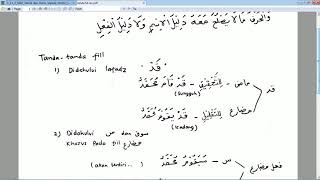 وَالْحَرْفُ مَا لَا يَصْلُحُ مَعَهُ دَلِيْلُ الْاِسْمِ وَلَا دَلِيْلُ الْفِعْلِ
Tanda-tanda fi'il
1) Didahului lafadz " قَدْ "
قد
ماض - لِلتَّحْقِيْقِ - قَدْ قَامَ مُحَمَّدٌ
(Sungguh)
مضارع - لِلتَّقْلِيْلِ - قَدْ يَقُوْمُ مُحَمَّدٌ
(Kadang)
2) Didahului س dan سوف
Khusus Pada fi'il مضارع
فعل مضارع
س - سَيَقُوْمُ مُحَمَّدٌ
(akan berdiri...)